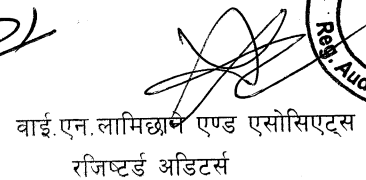 Reg. Aud
वाई.एन.लामिछाने एण्ड एसोसिएट्स
रजिष्टर्ड अडिटर्स